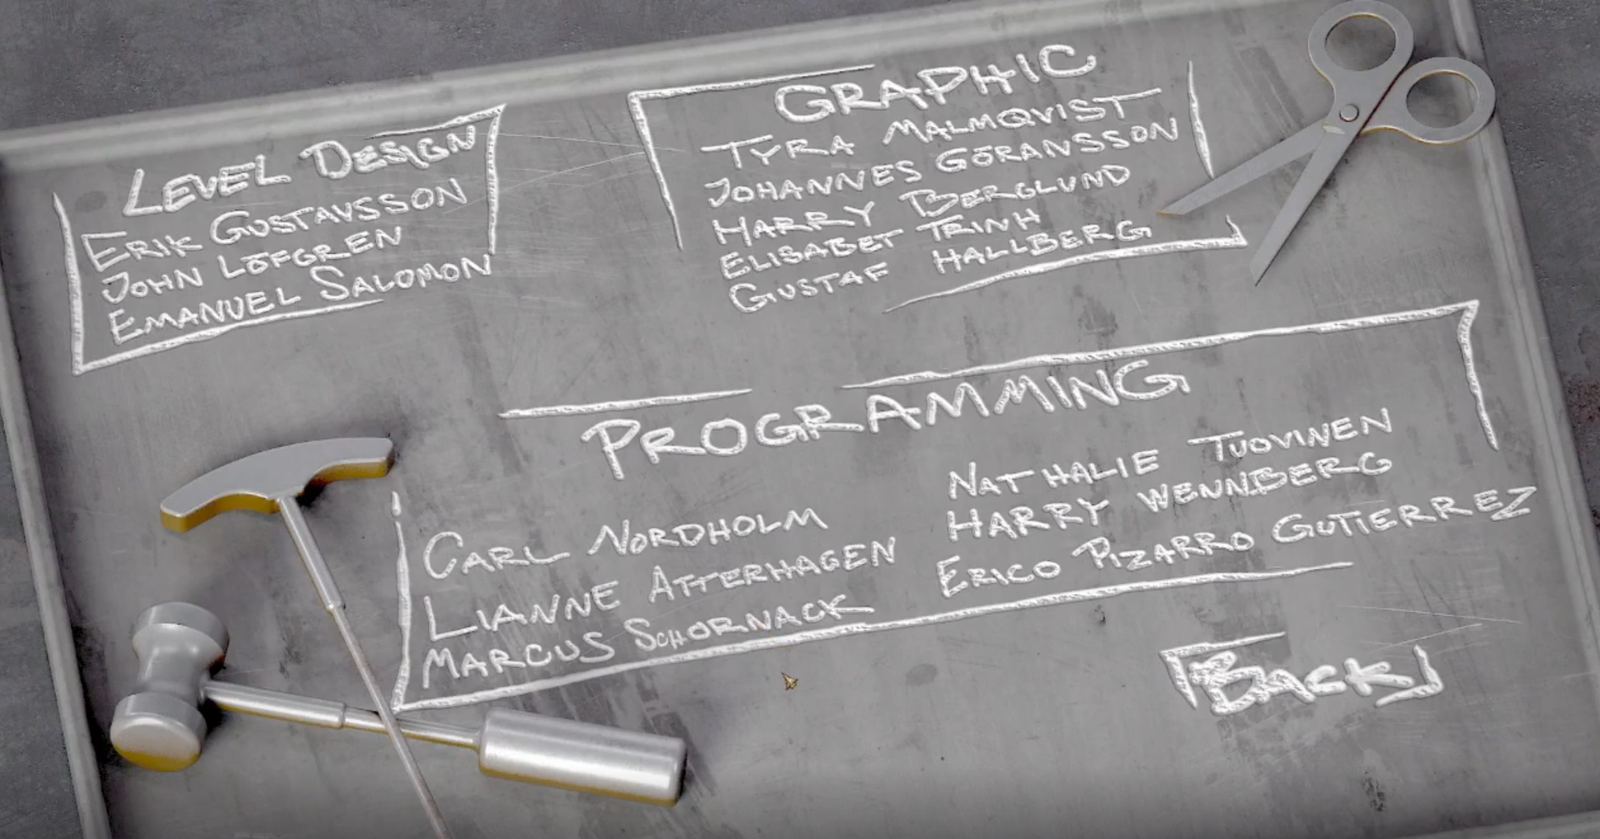 LEVEL DESIGN
ERIK GUSTAVSSON
JOHN LÖFGREN
EMANUEL SALOMON
GRAPHIC
TYRA MALMQVIST
JOHANNES GÖRANSSON
HARRY BERGLUND
ELISABET TRINH
GUSTAF HALLBERG
PROGRAMMING
CARL NORDHOLM
LIANNE ATTERHAGEN
MARCUS SCHORNACK
NATHALIE TUOVINEN
HARRY WENNBERG
ERICO PIZARRO GUTIERREZ
BACK